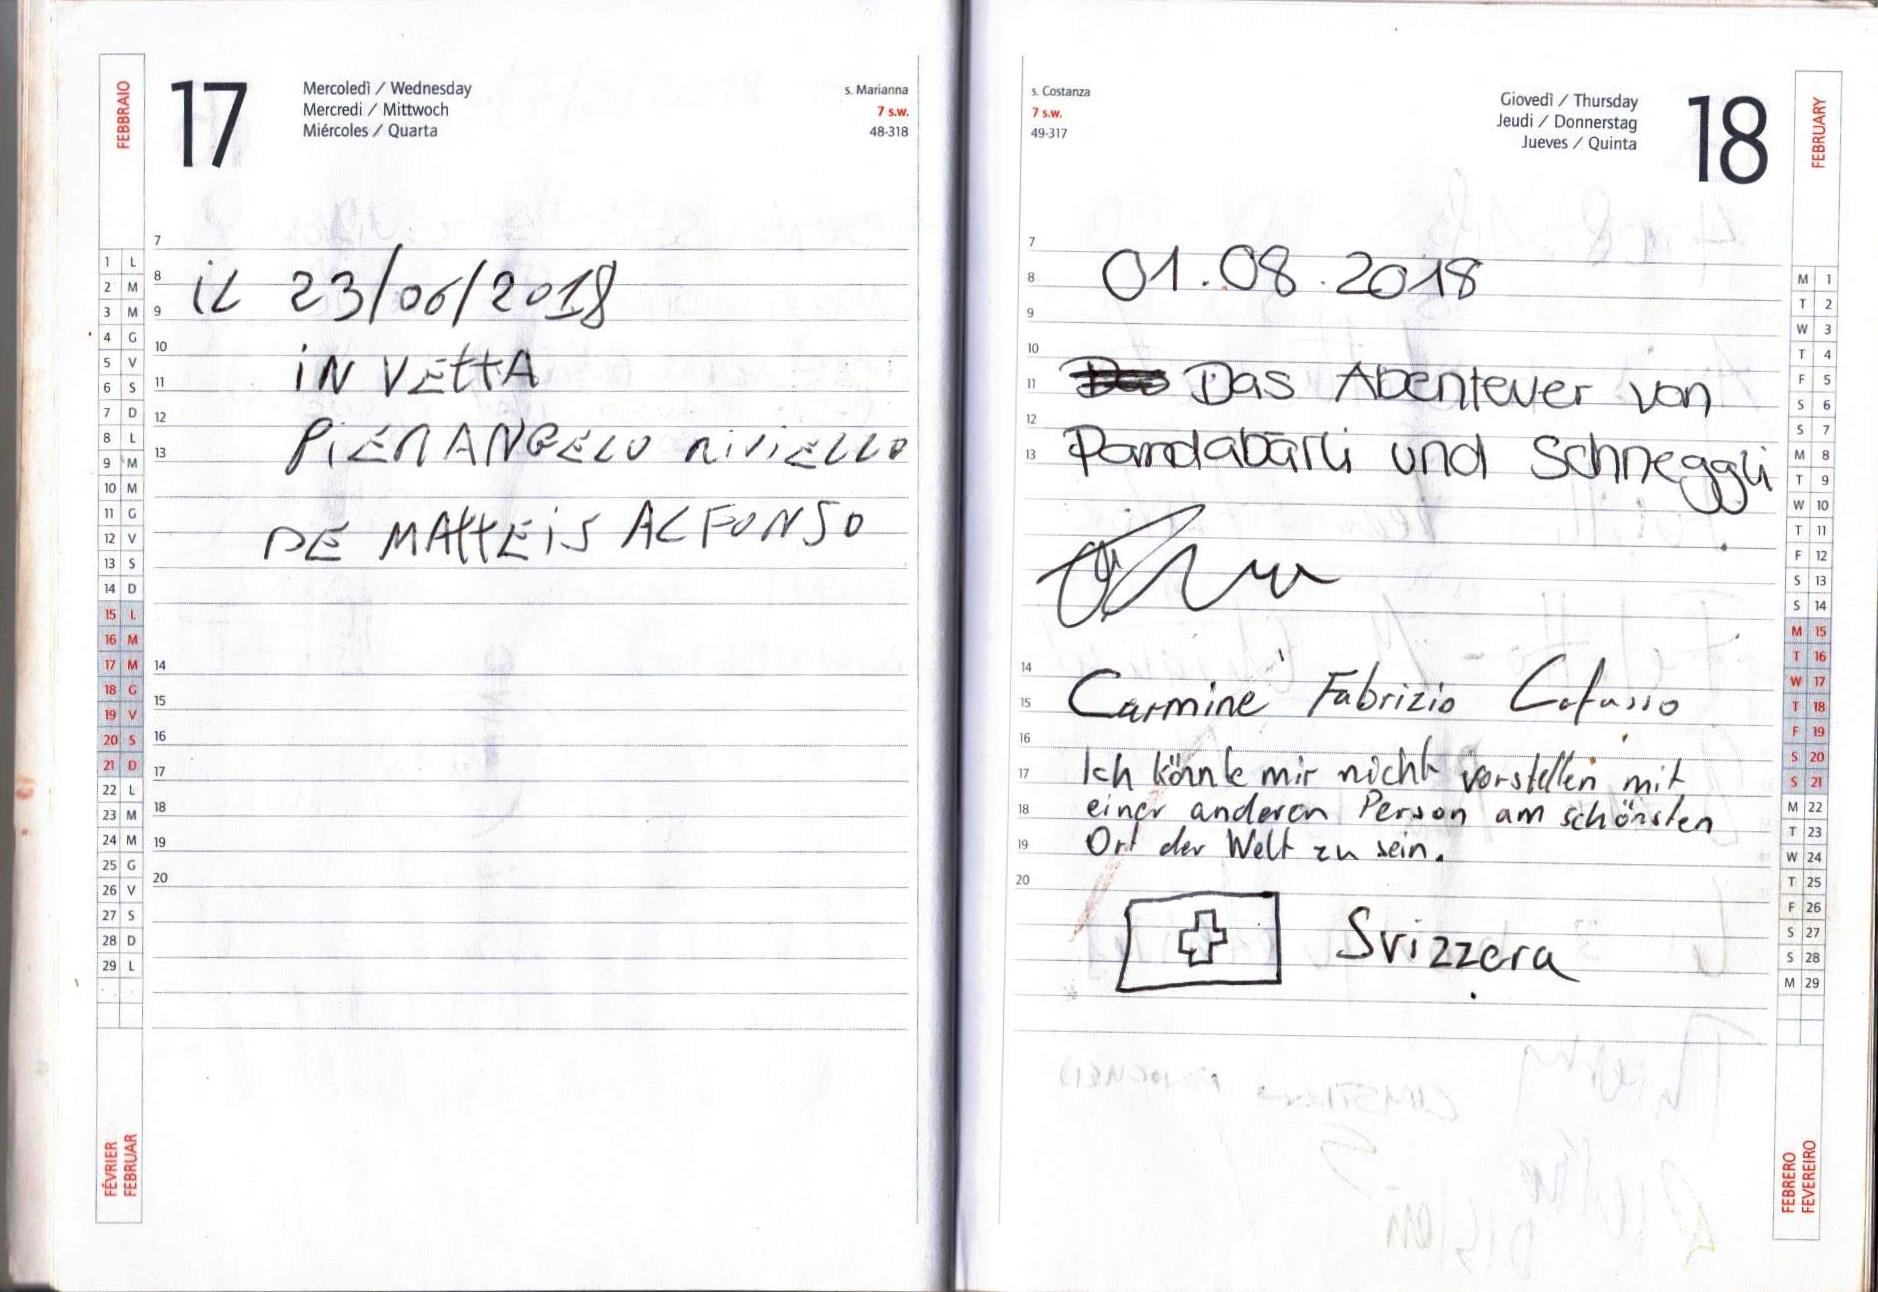 FEBBRAIO
17
Mercoledì / Wednesday
Mercredi / Mittwoch
Miércoles / Quarta
s. Marianna
7 s.w.
48-318
7
8
9
10
11
12
13
14
15
16
17
18
19
20
iL 23/06/2018
iN VEttA
PiERANGELO RiViELLO
DE MAttEiS ALFONSO
1 L
2 M
3 M
4 G
5 V
6 S
7 D
8 L
9 M
10 M
11 G
12 V
13 S
14 D
15 L
16 M
17 M
18 G
19 V
20 S
21 D
22 L
23 M
24 M
25 G
26 V
27 S
28 D
29 L
FÉVRIER
FEBRUAR
s. Costanza
7 s.w.
49-317
Giovedì / Thursday
Jeudi / Donnerstag
Jueves / Quinta
18
FEBRUARY
7
8
9
10
11
12
13
14
15
16
17
18
19
20
01.08.2018
Das Abenteuer von
Pandabärli und Schneggli
Carmine Fabrizio
Ich könnte mir nicht vorstellen mit
einer anderen Person am schönsten
Ort der Welt zu sein.
Svizzera
M 1
T 2
W 3
T 4
F 5
S 6
S 7
M 8
T 9
W 10
T 11
F 12
S 13
S 14
M 15
T 16
W 17
T 18
F 19
S 20
S 21
M 22
T 23
W 24
T 25
F 26
S 27
S 28
M 29
FEBRERO
FEVEREIRO